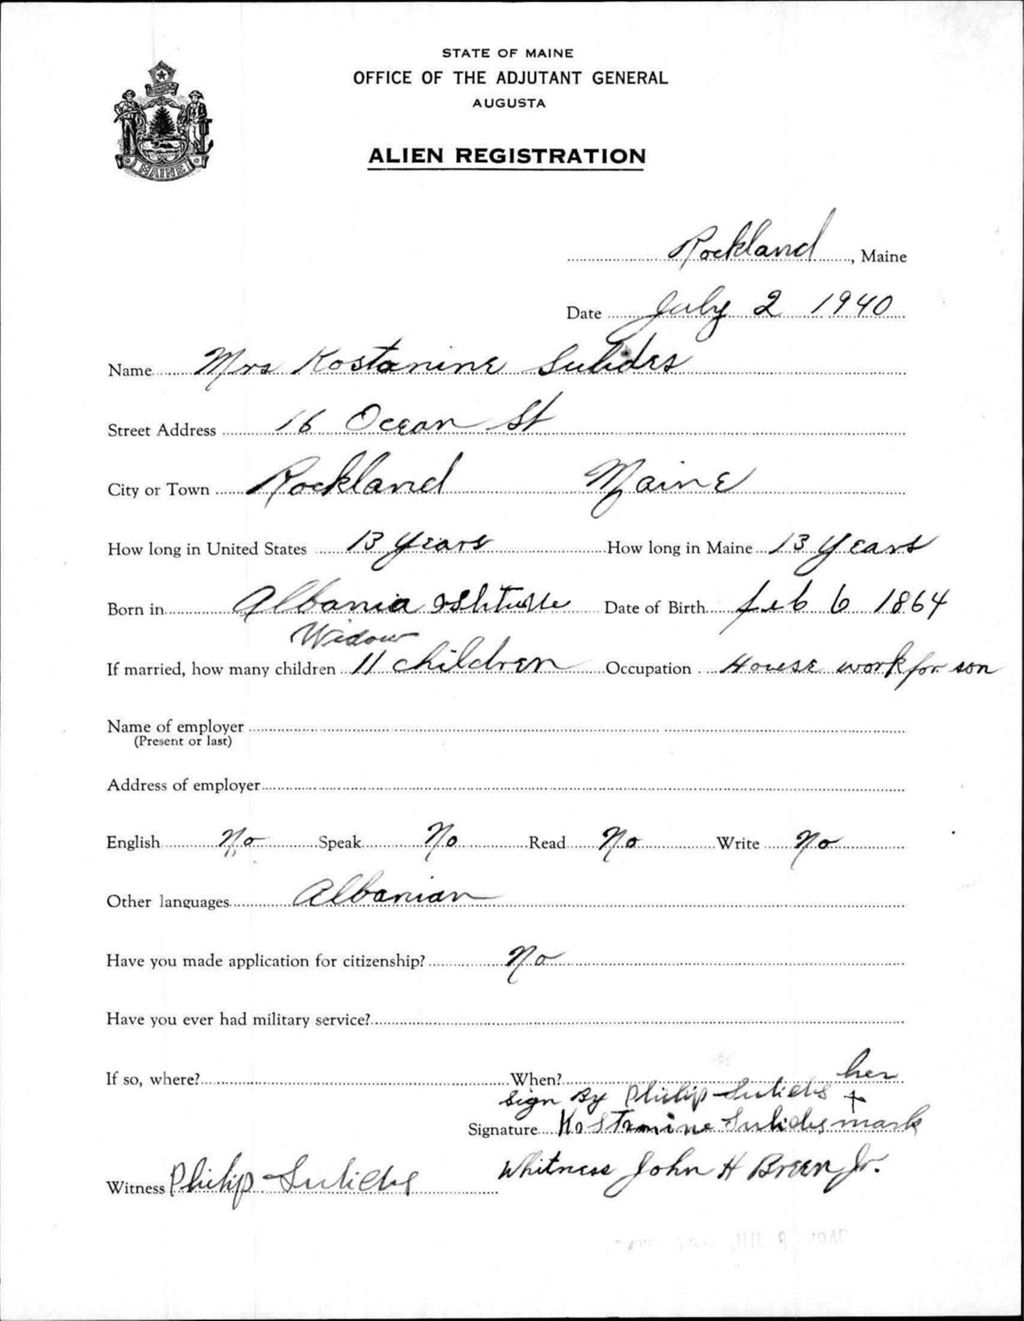 STATE OF MAINE
OFFICE OF THE ADJUTANT GENERAL
AUGUSTA
MAINE
ALIEN REGISTRATION
Rockland, Maine
Date July 2 1940
Name Mrs Kostanine Sulides
Street Address 16 Ocean St
City or Town Rockland Maine
How long in United States 13 Years How long in Maine 13 Years
Born in Albania Date of Birth Feb 6 1864
Widow
If married, how many children 11 children Occupation House work for son
Name of employer
(Present or last)
Address of employer
English No Speak No Read No Write No
Other languages Albanian
Have you made application for citizenship? No
Have you ever had military service?
If so, where? When?
her
Sign By Philip Sulides +
Signature Kostanine Sulides mark
Whitness John H Breen Jr.
Witness Philip Sulides